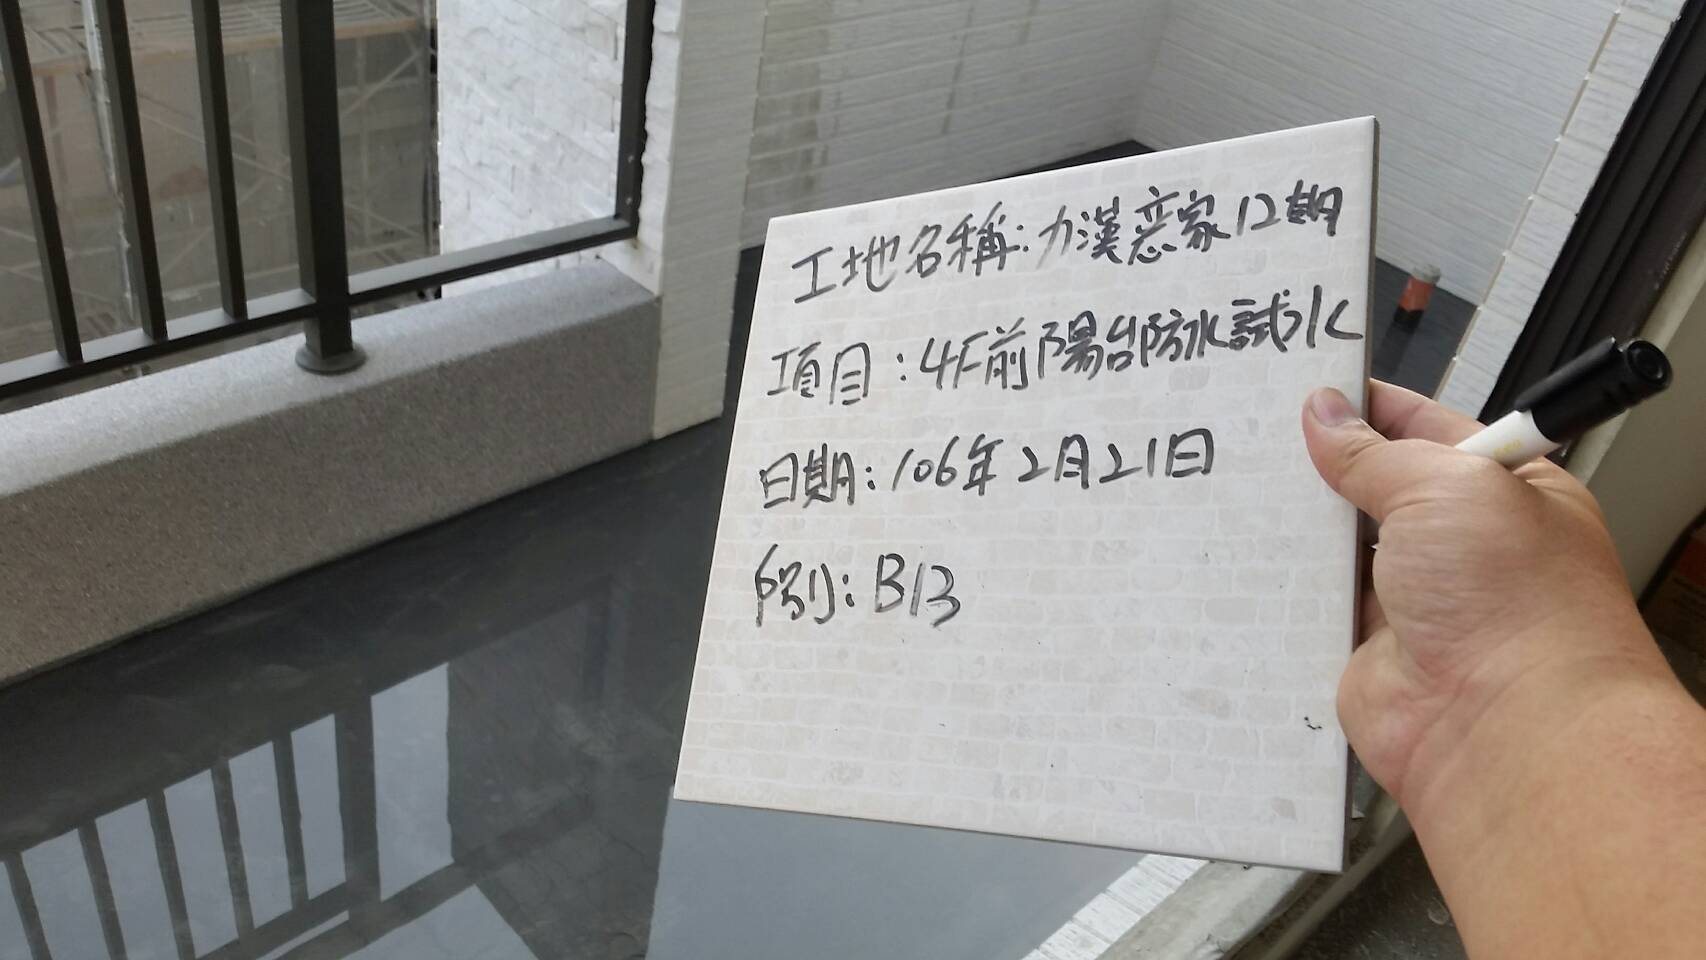 工地名稱:力漢戀家12期
項目:4F前陽台防水試水
日期:106年2月21日
戶別:B13